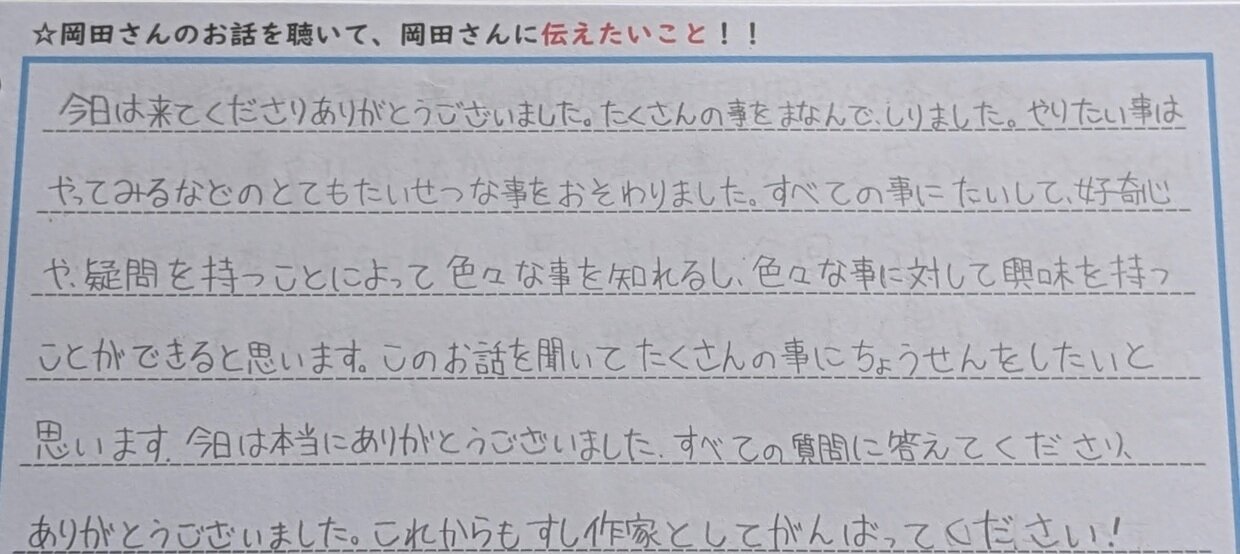 ☆岡田さんのお話を聴いて、岡田さんに伝えたいこと！！
今日は来てくださりありがとうございました。たくさんの事をまなんで、しりました。やりたい事は
やってみるなどのとてもたいせつな事をおそわりました。すべての事にたいして、好奇心
や、疑問を持つことによって色々な事を知れるし、色々な事に対して興味を持つ
ことができると思います。このお話を聞いてたくさんの事にちょうせんをしたいと
思います。今日は本当にありがとうございました。すべての質問に答えてくださり、
ありがとうございました。これからもすし作家としてがんばってください！